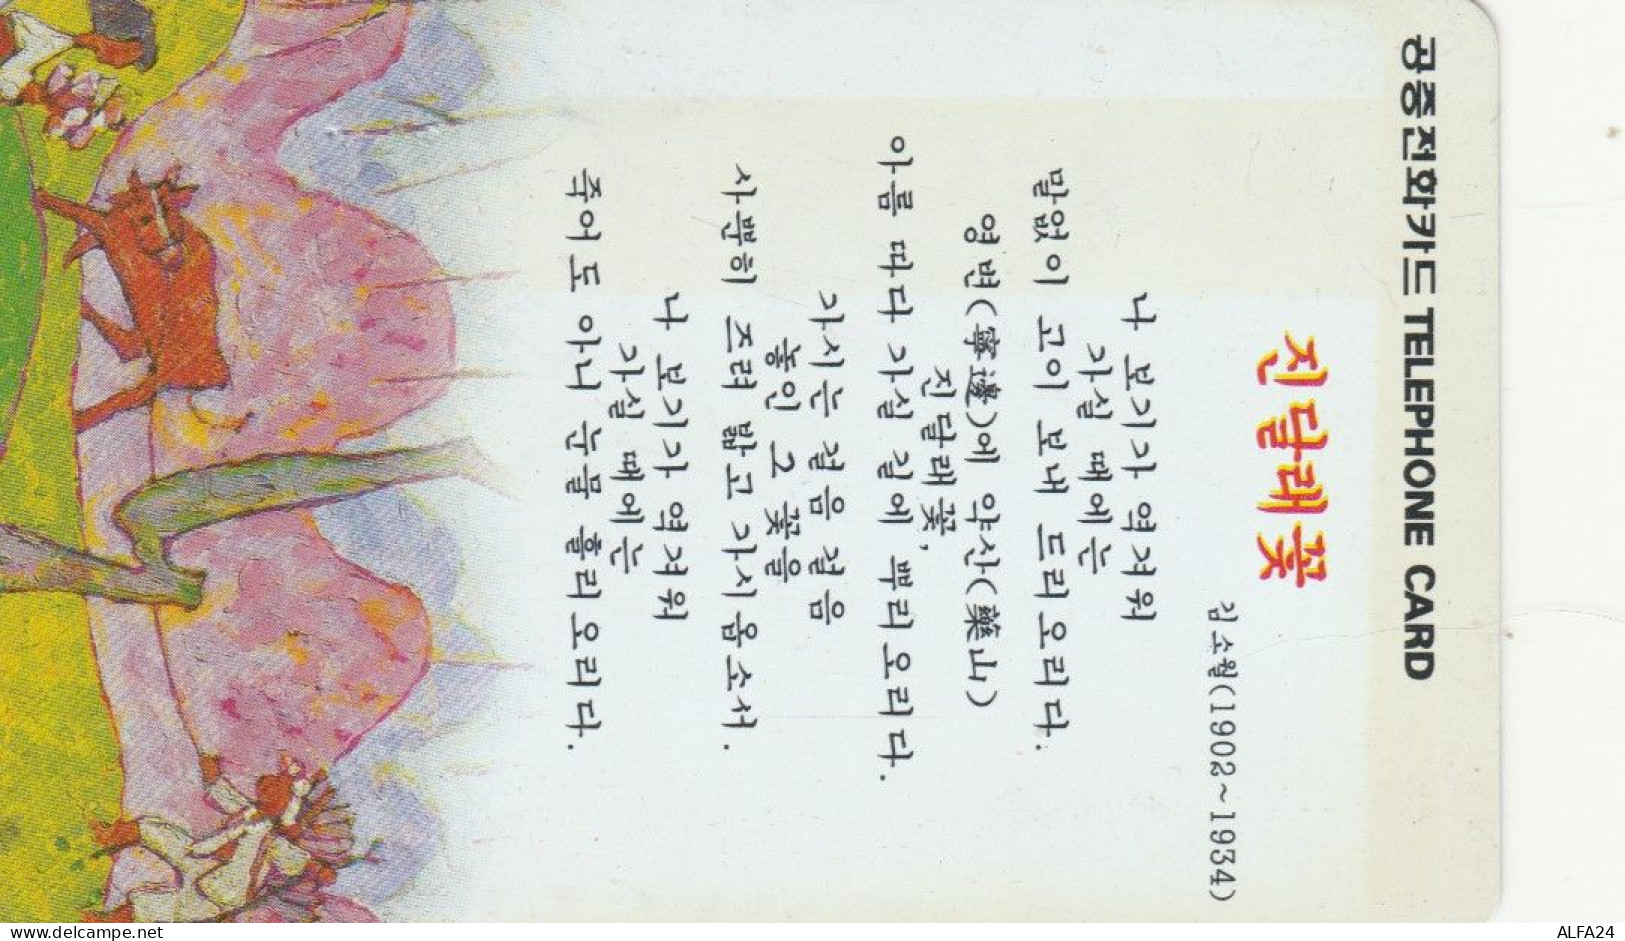 공중전화카드 TELEPHONE CARD
진달래꽃
김소월(1902~1934)
나 보기가 역겨워
가실 때에는
말없이 고이 보내 드리오리다.
영변(寧邊)에 약산(藥山)
진달래꽃,
아름 따다 가실 길에 뿌리오리다.
가시는 걸음 걸음
놓인 그 꽃을
사뿐히 즈려 밟고 가시옵소서.
나 보기가 역겨워
가실 때에는
죽어도 아니 눈물 흘리오리다.
www.delcampe.net
ALFA24